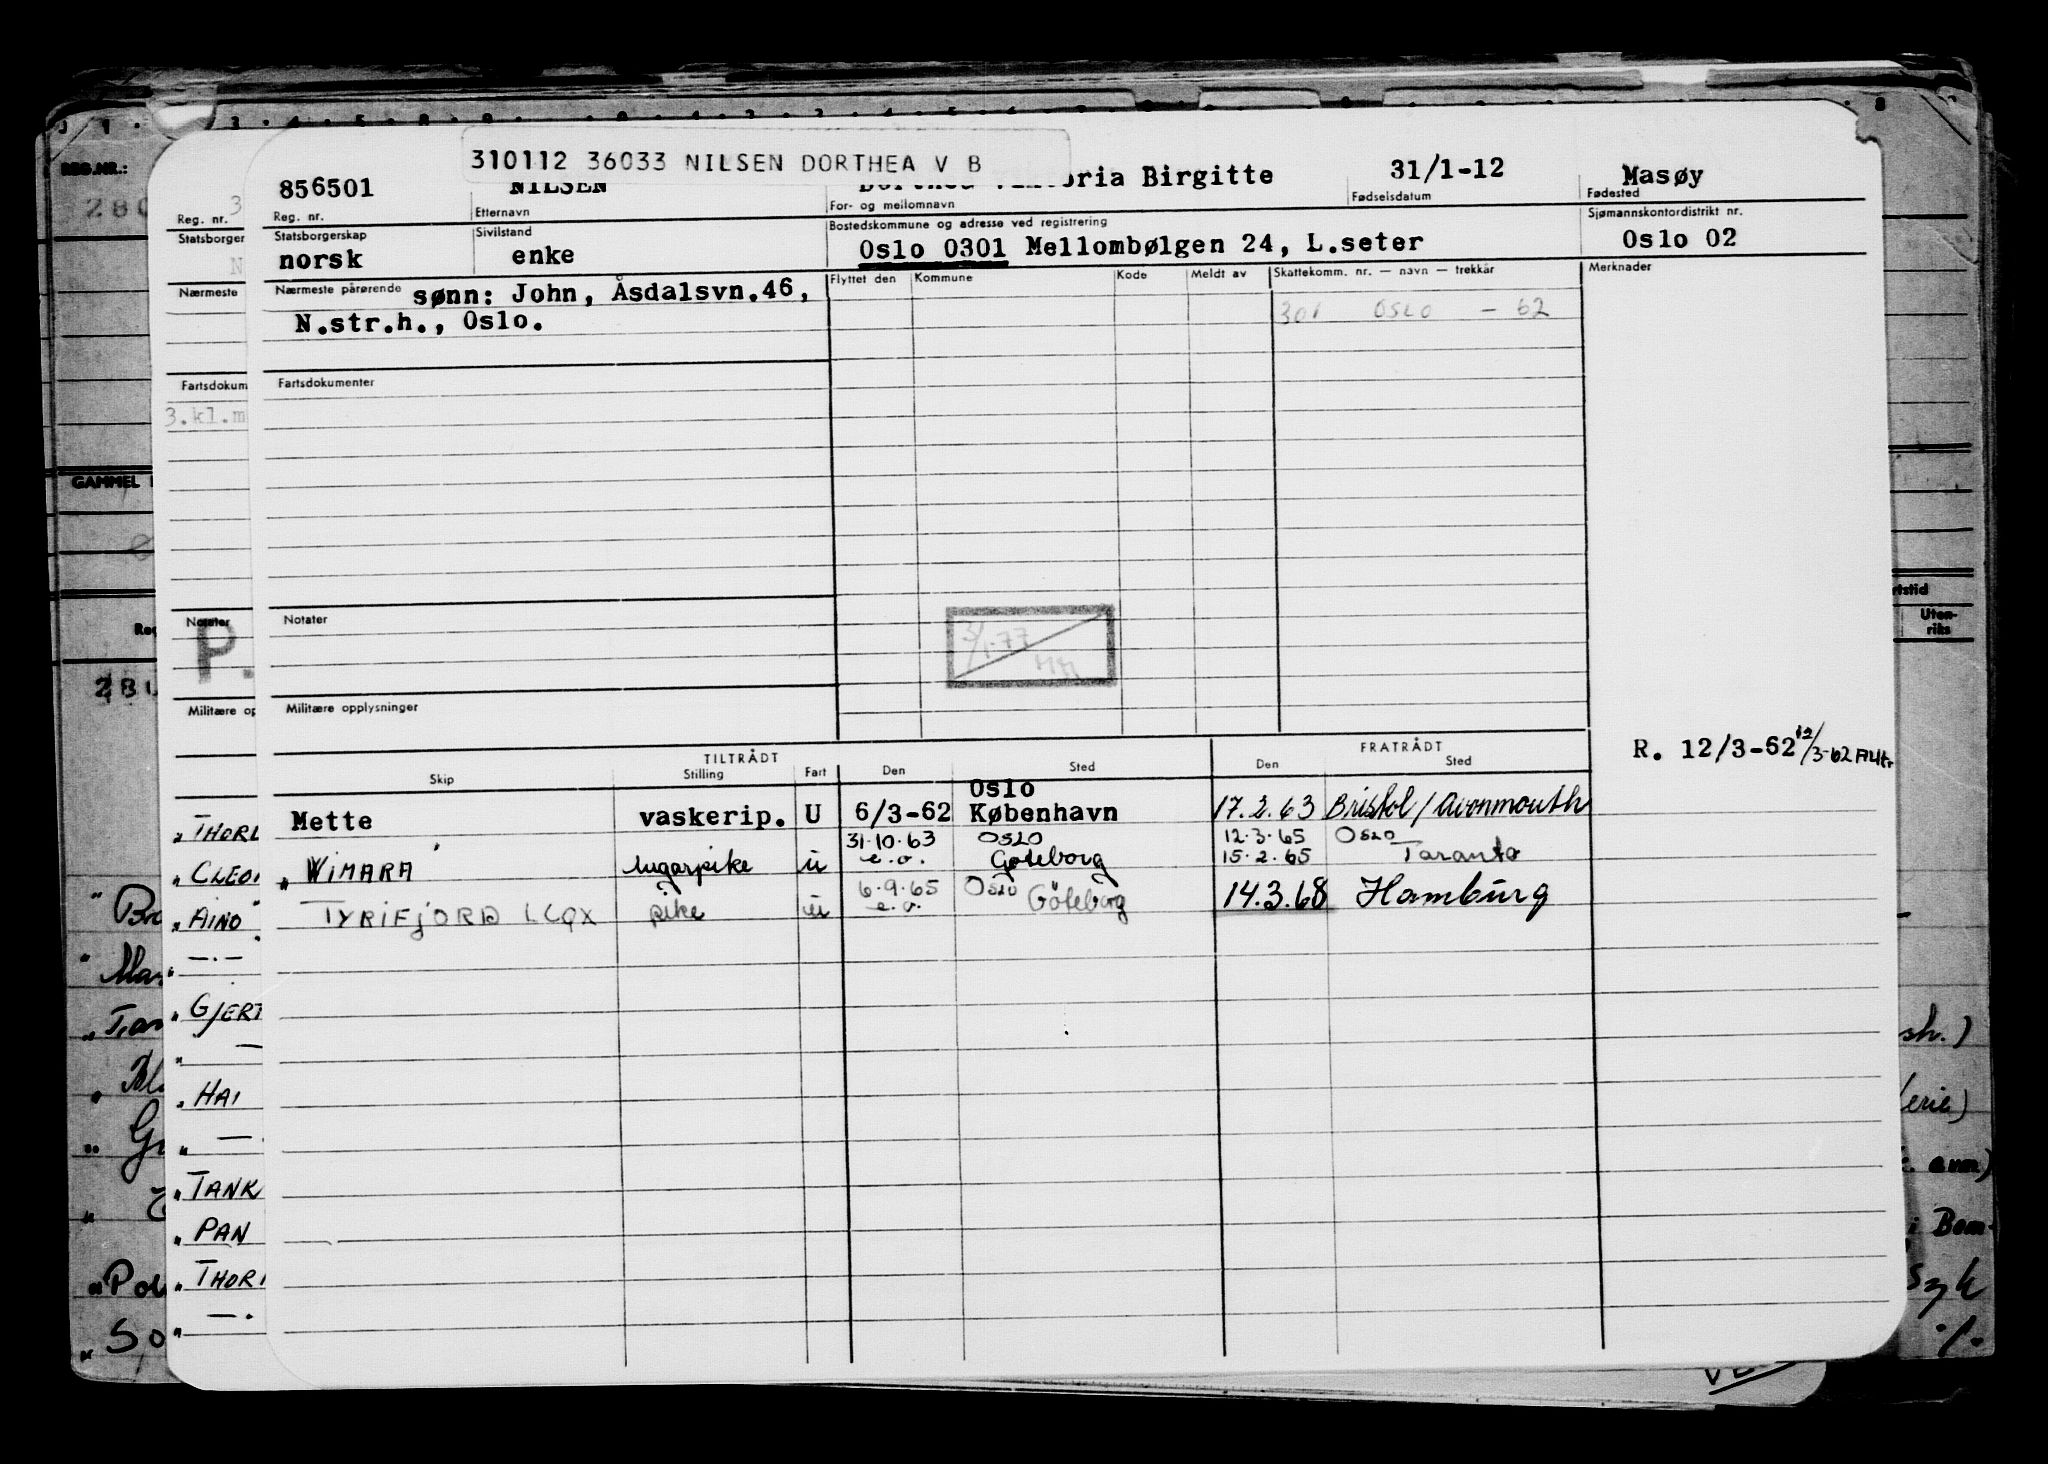 310112 36033 NILSEN DORTHEA V B
856501 NILSEN Dorthea Viktoria Birgitte 31/1-12 Masøy
Reg. nr. Etternavn For- og mellomnavn Fødselsdatum Fødested
Statsborgerskap Sivilstand Bostedskommune og adresse ved registrering Sjømannskontordistrikt nr.
norsk enke Oslo 0301 Mellombølgen 24, L.seter Oslo 02
Nærmeste pårørende sønn: John, Åsdalsvn.46, Flyttet den Kommune Kode Meldt av Skattekomm. nr. — navn — trekkår Merknader
N.str.h., Oslo. 301 OSLO - 62
Fartsdokumenter
Notater
3/1-77
Militære opplysninger
R. 12/3-62 12/3-62
TILTRÅDT FRATRÅDT
Skip Stilling Fart Den Sted Den Sted
Oslo
Mette vaskerip. U 6/3-62 København 17.2.63 Bristol/Avonmouth
31.10.63 OSLO 12.3.65 OSLO
" WIMARA lugarpike u e.o. Göteborg 15.2.65 Taranto
6.9.65 OSLO
TYRIFJORD LCQX pike u e.o. Göteborg 14.3.68 Hamburg
REG.NR.:
Reg. nr. 3
Statsborger
N
Nærmeste
Fartsdokum
3.kl.m
GAMMEL
Notater
P.
Militære op
" THORL
CLEO
" AINO
" —.—
" GJERT
" —
" HAI
" —.
" TANK
" PAN
" THOR
" —.
rtstid
Uten-
riks
sh.)
erie)
anm)
i Bom-
Syk